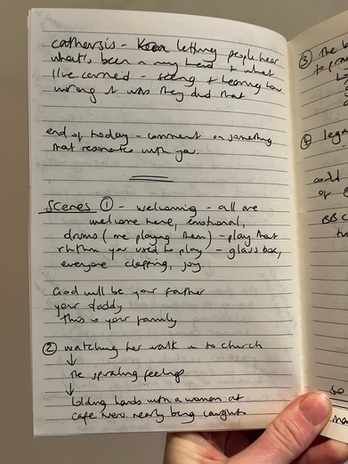 catharsis - letting people hear
what's been in my head + what
I've carried - seeing + hearing how
wrong it was they did that
end of today - comment on something
that resonates with you.
Scenes ① - welcoming - all are
welcome here, emotional,
drums (me playing them) - play that
rhythm you used to play - glass box,
everyone clapping, joy.
God will be your father
your daddy
this is your family
② watching her walk in to church
↓
the spiraling feelings
↓
holding hands with a woman at
cafe nero nearly being caught
③ The
to
④
BBC
so